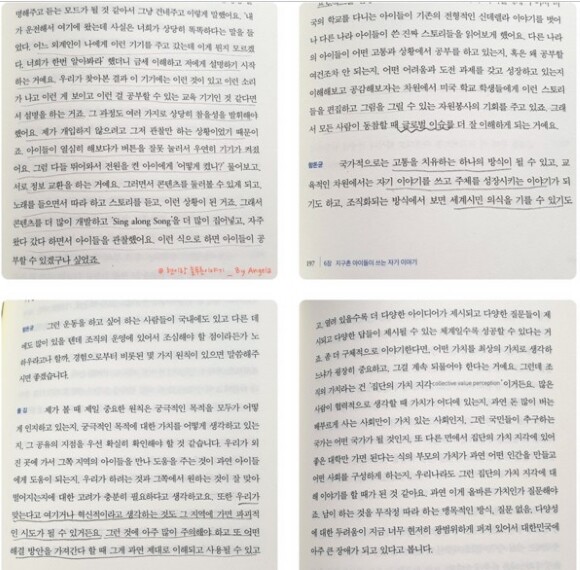 명해주고 듣는 모드가 될 것 같아서 그냥 건네주고 이렇게 말했어요, '내
가 운전해서 여기에 왔는데 사실은 너희가 상당히 똑똑하다는 말을 들
었다. 어느 외계인이 나에게 이런 기기를 주고 갔는데 이게 뭔지 모르겠
다. 너희가 한번 알아봐라' 했더니 금세 이해하고 저에게 설명하기 시작
하는 거예요. 우리가 찾아본 결과 이 기기에는 이런 것이 있고 이런 소리
가 나고 이런 게 보이고 이런 걸 공부할 수 있는 교육 기기인 것 같다면
서 설명을 하는 거죠. 그 과정도 여러 가지로 상당히 활성을 발휘해야
했어요. 제가 개입하지 않으려고 그저 관찰만 하는 상황이었기 때문이
죠. 아이들이 열심히 해보다가 버튼을 잘못 눌러서 우연히 기기가 켜졌
어요. 그럼 다들 뛰어와서 전원을 켠 아이에게 '어떻게 켰니?' 물어보고,
서로 정보 교환을 하는 거예요. 그러면서 콘텐츠를 둘러볼 수 있게 되고,
노래를 들으면서 따라 하고 스토리를 듣고, 이런 상황이 된 거죠. 그래서
콘텐츠를 더 많이 개발하고 'Sing along Song'을 더 많이 집어넣고, 자주
왔다 갔다 하면서 아이들을 관찰했어요. 이런 식으로 하면 아이들이 공
부할 수 있겠구나 싶었죠.
By Angela
국의 학교를 다니는 아이들이 기존의 전형적인 신데렐라 이야기를 벗어
나 다른 나라 아이들이 쓴 진짜 스토리들을 읽어보게 했어요. 다른 나라
의 아이들이 어떤 고통과 상황에서 공부를 하고 있는지, 혹은 왜 공부할
여건조차 안 되는지, 어떤 어려움과 도전 과제를 갖고 성장하고 있는지
이해해보고 공감해보자는 차원에서 미국 학교 학생들에게 이런 스토리
들을 편집하고 그림을 그릴 수 있는 자원봉사의 기회를 주고 있죠. 그래
서 모든 사람이 동참할 때 글로벌 이슈를 더 잘 이해하게 되는 거예요.
국가적으로는 고통을 치유하는 하나의 방식이 될 수 있고, 교
육적인 차원에서는 자기 이야기를 쓰고 주체를 성장시키는 이야기가 되
기도 하고, 조직화되는 방식에서 보면 세계시민 의식을 기를 수 있기도
197 6장 지구촌 아이들이 쓰는 자기 이야기
그런 운동을 하고 싶어 하는 사람들이 국내에도 있고 다른 데
에도 많이 있을 텐데 조직의 운영에 있어서 조심해야 할 점이라든가 노
하우라고나 할까, 경험으로부터 비롯된 몇 가지 원칙이 있으면 말씀해주
시면 좋겠습니다.
제가 볼 때 제일 중요한 원칙은 궁극적인 목적을 모두가 어떻
게 인지하고 있는지, 궁극적인 목적에 대한 가치를 어떻게 생각하고 있는
지, 그 공유의 지점을 우선 확실히 확인해야 할 것 같습니다. 우리가 외
진 곳에 가서 그쪽 지역의 아이들을 만나 도움을 주는 것이 과연 아이들
에게 도움이 되는지, 우리가 하려는 것과 그쪽에서 원하는 것이 잘 맞아
떨어지는지에 대한 고려가 충분히 필요하다고 생각하고요. 또한 우리가
맞는다고 여기거나 혁신적이라고 생각하는 것도 그 지역에 가면 파괴적
인 시도가 될 수 있거든요. 그런 것에 아주 많이 주의해야 하고 또 어떤
해결 방안을 가져간다 할 때 그게 과연 제대로 이해되고 사용될 수 있고
고, 열려 있을수록 더 다양한 아이디어가 제시되고 다양한 질문들이 제
시되고 다양한 답들이 제시될 수 있는 체계일수록 성공할 수 있다는 거
죠. 좀 더 구체적으로 이야기한다면, 어떤 가치를 최상의 가치로 생각하
느냐가 굉장히 중요하고, 그걸 계속 되물어야 한다는 거예요. 그런데 조
직의 가치라는 건 '집단의 가치 지각collective value perception'이거든요. 많은
사람이 협력적으로 생각할 때 가치가 어디에 있는지, 과연 돈 많이 버는
배부르게 사는 사회만이 가치 있는 사회인지, 그런 국민들이 추구하는
국가는 어떤 국가가 될 것인지, 또 다른 면에서 집단의 가치 지각에 있어
좋은 대학만 가면 된다는 식의 부모의 가치가 과연 어떤 인간을 만들고
어떤 사회를 구성하게 하는지, 우리나라도 그런 집단의 가치 지각에 대
해 이야기를 할 때가 된 것 같아요. 과연 이게 올바른 가치인가 질문해야
죠. 남이 하는 것을 무작정 따라 하는 맹목적인 방식, 질문 없음, 다양성
에 대한 두려움이 지금 너무 현저히 광범위하게 퍼져 있어서 대한민국에
아주 큰 장애가 되고 있다고 봅니다.